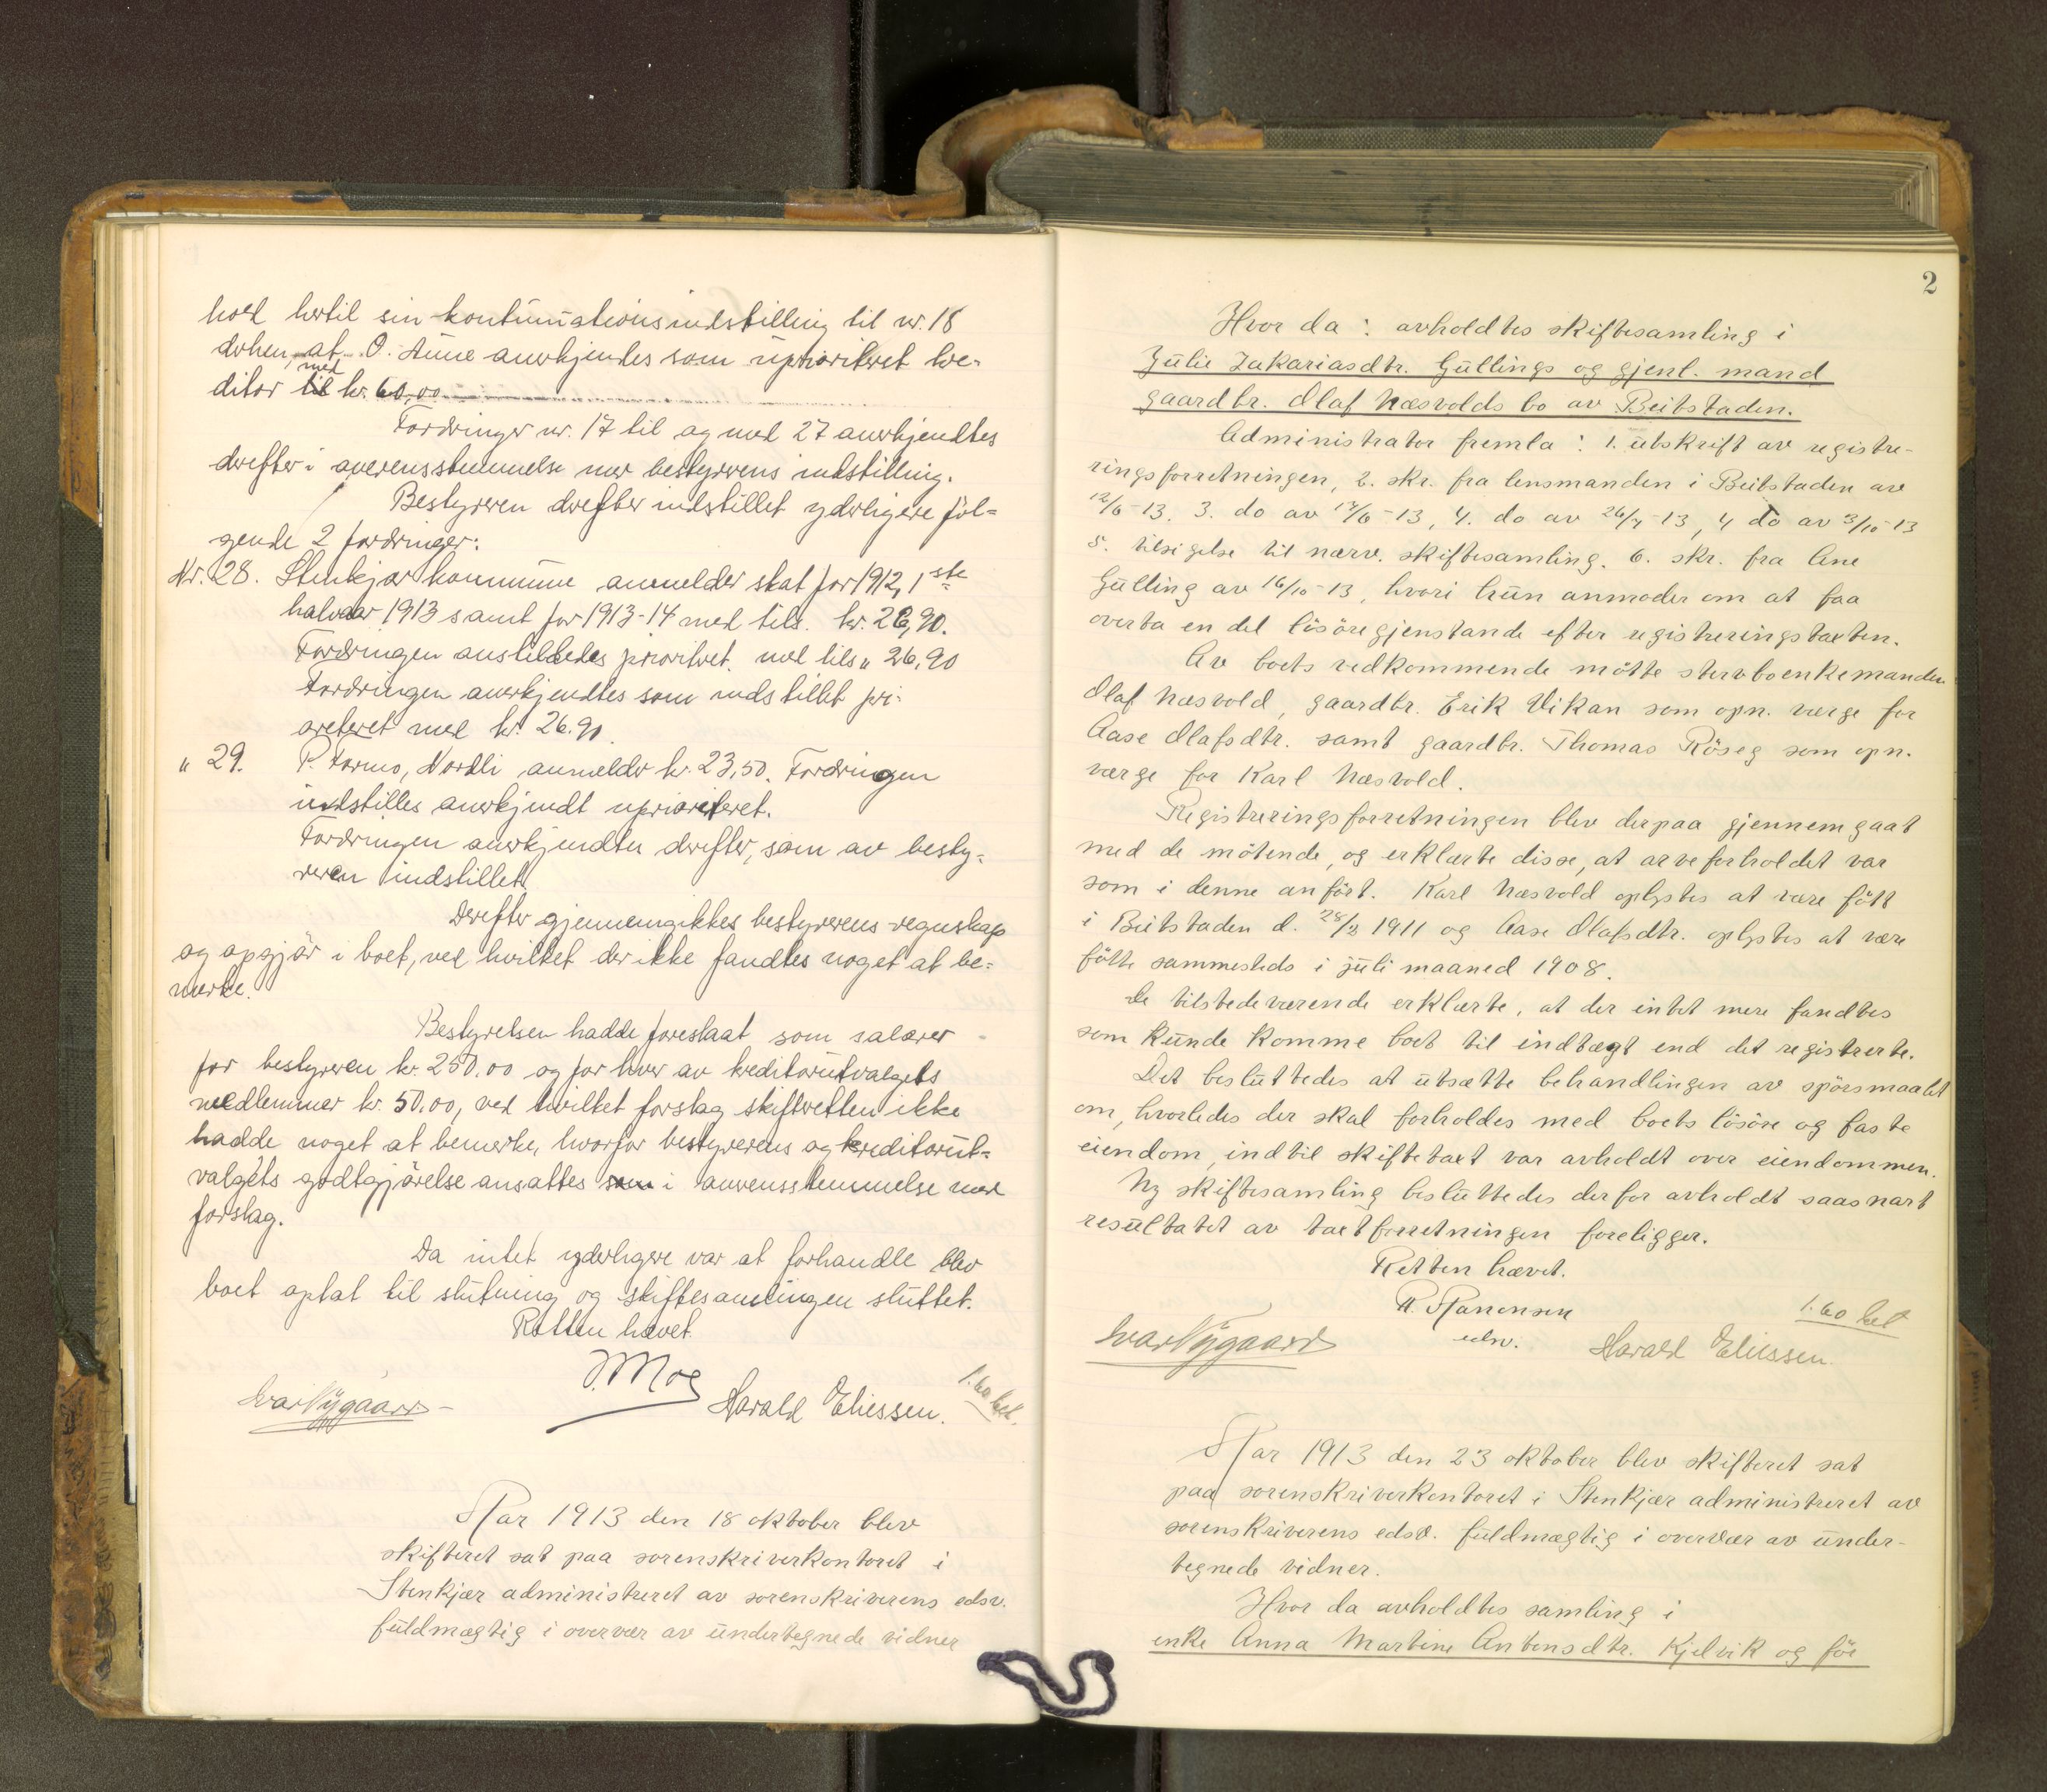 hold hertil sin kontinuationsindstilling til nr. 18
dohen, at O. Aune anerkjendes som uprioriteret kre-
ditor til med kr. 60,00
Fordringer nr. 17 til og med 27 anerkjendtes
derefter i overensstemmelse mer bestyrerens indstilling.
Bestyreren derefter indstillet yderligere föl-
gende 2 fordringer:
Nr. 28. Stenkjær kommune anmelder skat for 1912, 1ste
halvaar 1913 samt for 1913-14 med tils. kr. 26,90.
Fordringen anstilledes prioritret med tils „ 26,90
Fordringen anerkjendtes som indstillet pri-
oreteret med kr. 26.90.
„ 29. P. Formo, Nordli anmelder kr. 23,50. Fordringen
indstilles anerkjendt uprioriteret.
Fordringen anerkjendtes derefter, som av besty-
reren indstillet.
Derefter gjennemgikkes bestyrerens regnskap
og opgjör i boet, ved hvilket der ikke fandtes noget at be-
merke.
Bestyrelsen hadde foreslaat som salærer
for bestyreren kr. 250.00 og for hver av kreditorutvalgets
medlemmer kr. 50.00, ved hvilket forslag skifteretten ikke
hadde noget at bemerke, hvorfor bestyrerens og kreditorut-
valgets godtgjörelse ansattes som i overensstemmelse med
forslag.
Da intet yderligere var at forhandle blev
boet optat til slutning og skiftesamlingen sluttet.
Retten hævet.
J. Moe
Ivar Nygaard Harald Eliessen. 1.60 bet.
Aar 1913 den 18 oktober blev
skifteret sat paa sorenskriverkontoret i
Stenkjær administreret av sorenskriverens edsv.
fuldmægtig i overvær av undertegnede vidner
2
Hvor da: avholdtes skiftesamling i
Julie Zakariasdtr. Gullings og gjenl. mand
gaardbr. Olaf Næsvolds bo av Beitstaden.
Administrator fremla: 1. utskrift av registre-
ringsforretningen, 2. skr. fra lensmanden i Beitstaden av
12/6-13. 3. do av 17/6-13, 4. do av 26/7-13, 4 do av 3/10-13
5. tilsigelse til nærv. skiftesamling. 6. skr. fra Ane
Gulling av 16/10-13, hvori hun anmoder om at faa
overta en del lösöregjenstande efter registreringstaxten.
Av boets vedkommende mötte stervboenkemanden
Olaf Næsvold, gaardbr. Erik Vikan som opn. værge for
Aase Olafsdtr. samt gaardbr. Thomas Röseg som opn.
værge for Karl Næsvold.
Registreringsforretningen blev derpaa gjennemgaat
med de mötende, og erklærte disse, at arveforholdet var
som i denne anfört. Karl Næsvold oplystes at være födt
i Beitstaden d. 28/3 1911 og Aase Olafsdtr. oplystes at være
födt sammesteds i juli maaned 1908.
De tilstedeværende erklærte, at der intet mere fandtes
som kunde komme boet til indtægt end det registrerte.
Det besluttedes at utsætte behandlingen av spörsmaalet
om, hvorledes der skal forholdes med boets lösöre og faste
eiendom, indtil skiftetaxt var avholdt over eiendommen.
Ny skiftesamling besluttedes derfor avholdt saasnart
resultatet av taxtforretningen foreligger.
Retten hævet.
edsv. 1.60 bet
Ivar Nygaard Harald Eliessen.
Aar 1913 den 23 oktober blev skifteret sat
paa sorenskriverkontoret i Stenkjær administreret av
sorenskriverens edsv. fuldmægtig i overvær av under-
tegnede vidner.
Hvor da avholdtes samling i
enke Anna Martine Antonsdtr. Kjelvik og för